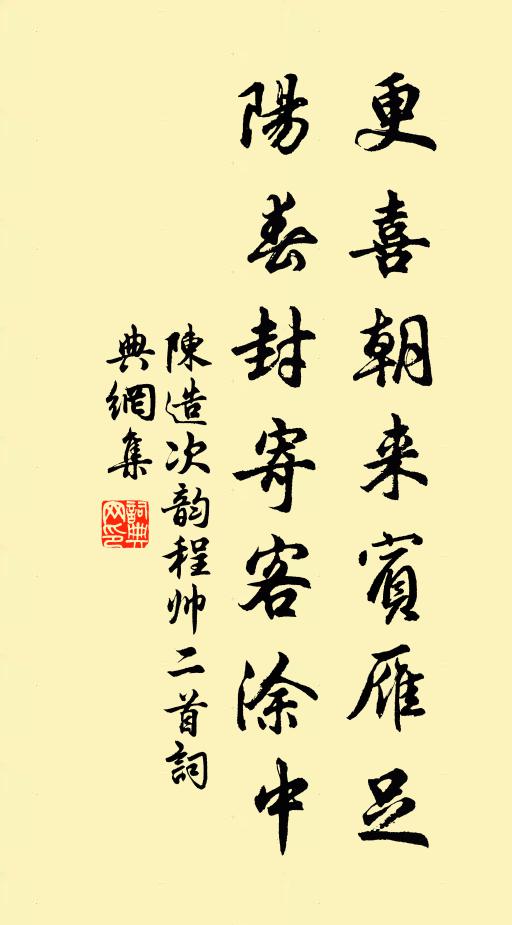 更喜朝来賓雁足
陽春封寄客涂中
陳造次韵程帅二首詞
典網集
詞典网印